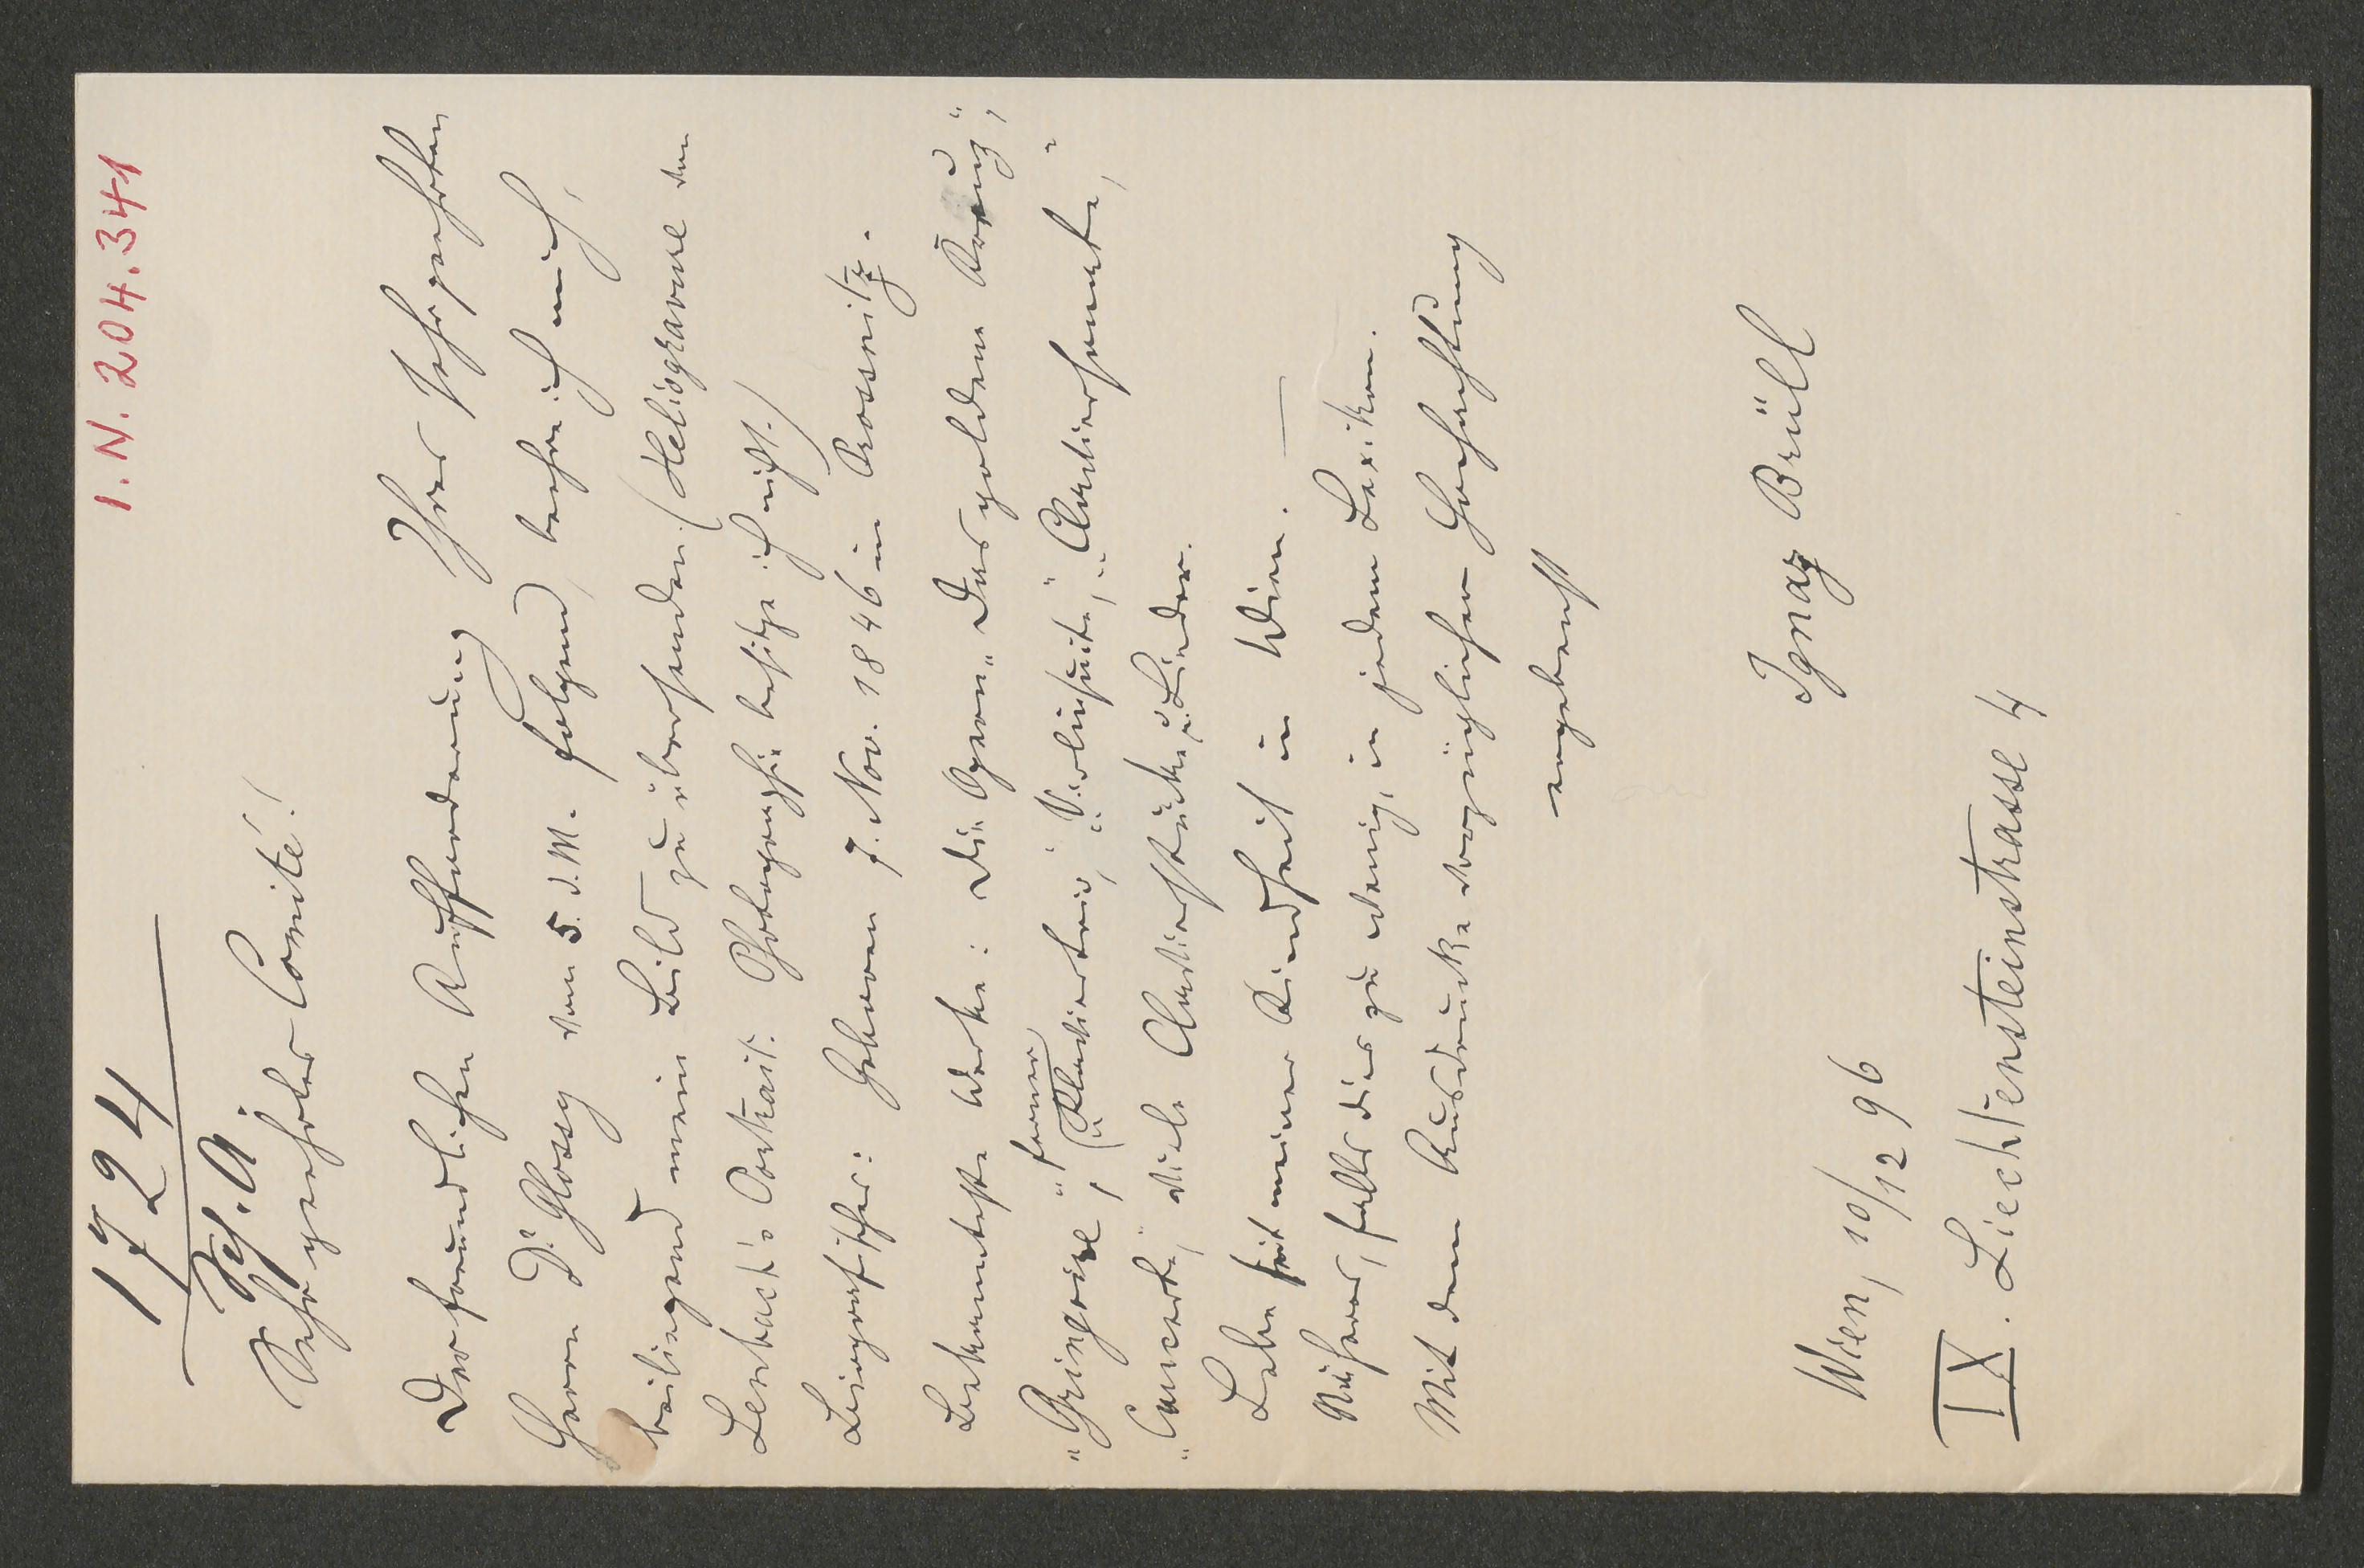 I. N. 204.341
1724
Sch. A.
Sehr geehrtes Comité!
Der freundlichen Aufforderung Ihres sehr geehrten
Herrn Dr. Glossy vom 5. d. M. folgend, beehre ich mich,
beiliegend mein Bild zu übersenden. (Heliogravure von
Lenbach's Portrait. Photographie besitze ich nicht.)
Biografisches: Geboren 7. Nov. 1846 in Prossnitz.
Bekannteste Werke: Die Opern „Das goldene Kreuz",
„Gringoire", ferner „Klaviertrio", „Violinsuite", „Claviersonate",
„Concerte", viele Clavierstücke u. Lieder.
Lebe seit meiner Kindheit in Wien. —
Näheres, falls dies zu wenig, in jedem Lexikon.
Mit dem Ausdrucke vorzüglicher Hochachtung
ergebenst
Ignaz Brüll
Wien, 10/12 96
IX. Liechtensteinstrasse 4